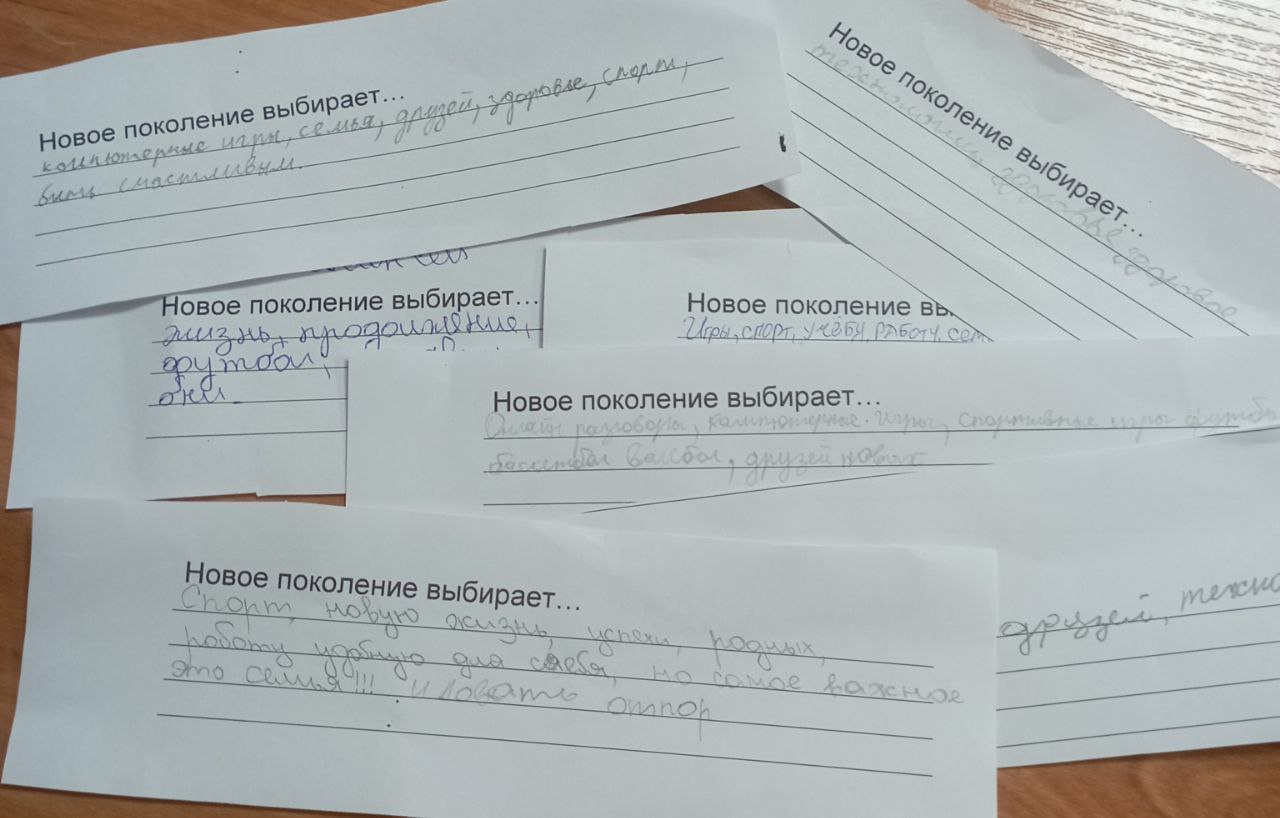 Новое поколение выбирает...
компютерные игры, семья, друзей, здоровье, спорт,
быть счастливым.
Новое поколение выбирает...
технологии здоровье здоровое
Новое поколение выбирает...
жизнь, продолжение,
футбол,
Новое поколение вы
Игры, спорт, учёбу, работу, сем
Новое поколение выбирает...
Онлайн разговоры, компютерные игры, спортивные игры футбол
баскетбол валебол, друзей новых
друзей, техно
Новое поколение выбирает...
Спорт, новую жизнь, успехи, родных,
работу удобную для себя, но самое важное
это семья!!! и довать отпор